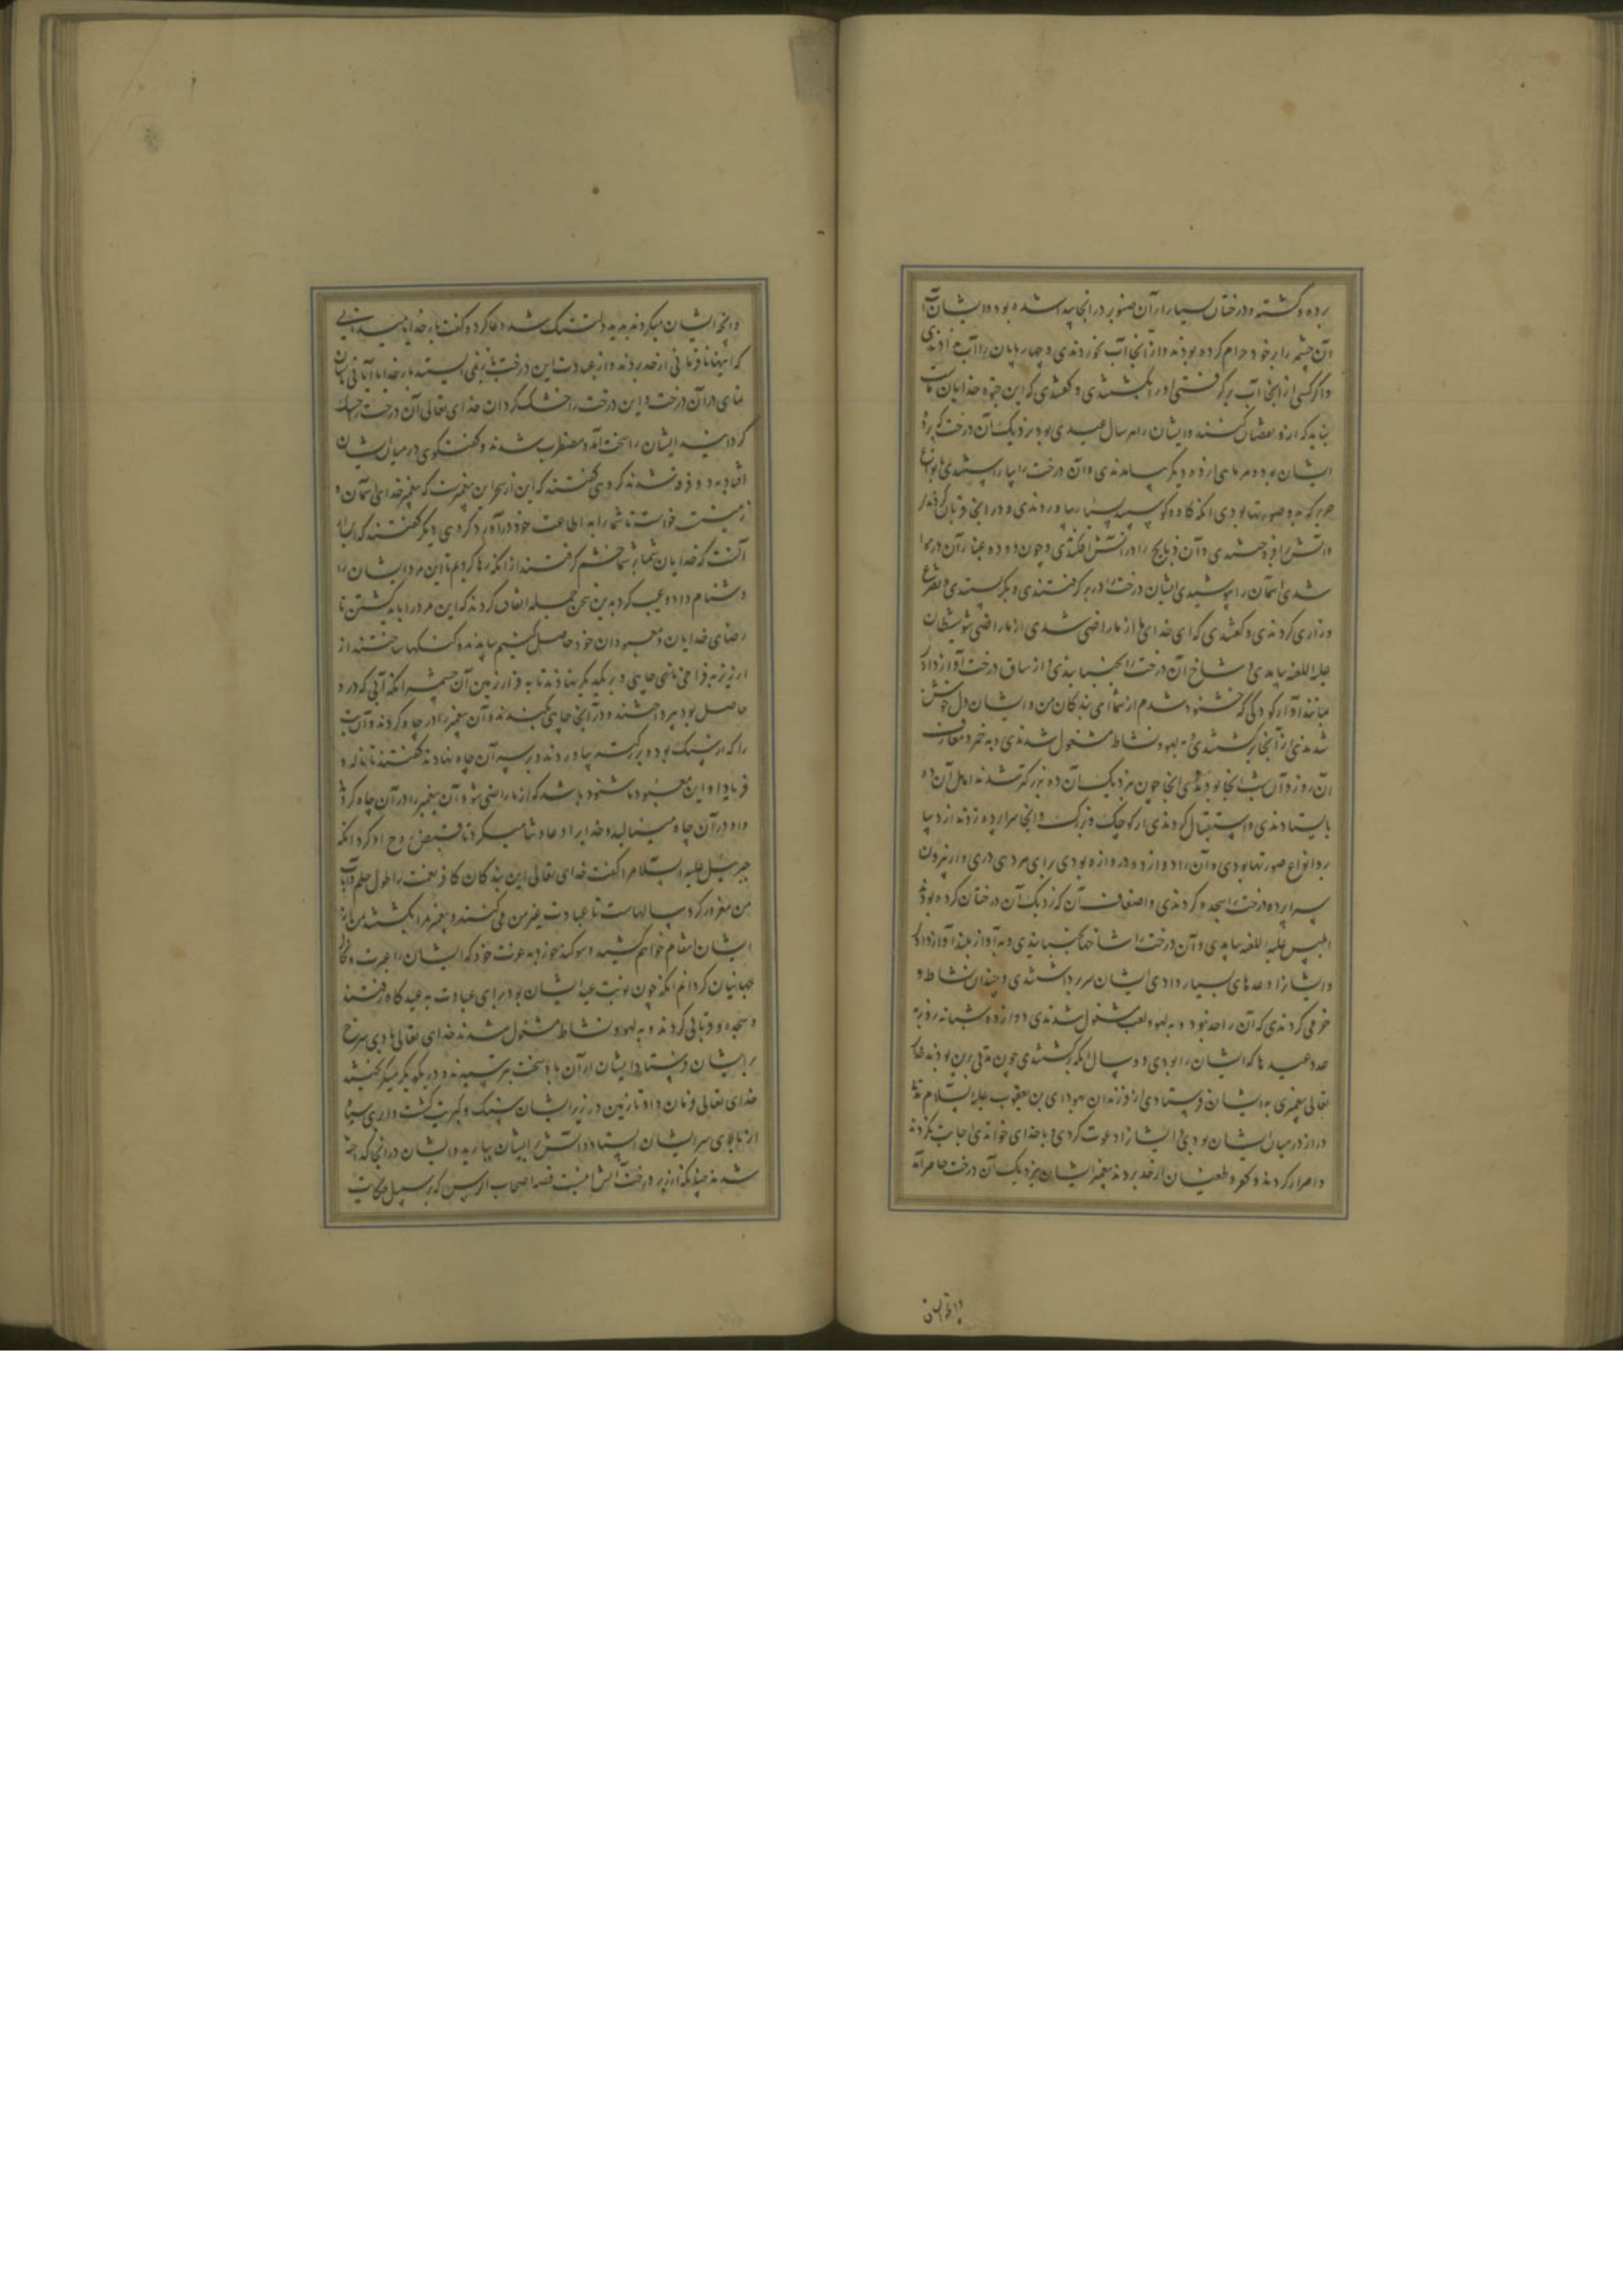 برده و گشته و درختان بسیار از آن صنوبر در آنجا پیدا شده بود و ایشان آب
آن چشمه را بر خود حرام کرده بودند و از آنجا آب نخوردندی و چهارپایان را آب ندادندی
و اگر کسی از آنجا آب برگرفتی او را بکشتندی و گفتندی که این حیوة خدایان ماست
نباید که از و نقصان کنند و ایشان را هر سال عیدی بود نزدیک آن درخت که
ایشان بود و هر ماهی از ده دیگر بیامدندی و آن درخت را بیاراستندی بانواع
حریر که برو صورتها بودی آنگه گاو و گوسپند بسیار بیاوردندی و در آنجا قربان کردندی
و آتش برافروختندی و آن ذبایح را در آتش افکندندی و چون دود و غبار آن در هوا
شدی آسمان را بپوشیدی ایشان درخت را در بر گرفتندی و بگریستندی و تضرع
و زاری کردندی و گفتندی که ای خدای ما از ما راضی شو شیطان
علیه اللعنه بیامدی و شاخ آن درخت را بجنبانیدی و از ساق درخت آواز دادی
مانند آواز کودکی که خشنود شدم از شما ای بندگان من و ایشان دل خوش
شدندی از آنجا برگشتندی و به لهو و نشاط مشغول شدندی و به خمر و معازف
آن روز و آن شب آنجا بودندی چون نزدیک آن ده بزرگتر شدند اهل آن ده
بایستادندی و استقبال کردندی از کوچک و بزرگ و آنجا سراپرده زدند از دیبا
برو انواع صورتها بودی و آن را دوازده دروازه بودی برای مردی دری و از بیرون
سراپرده درخت را سجده کردندی و اضعاف آن که نزدیک آن درختان کرده بودند
ابلیس علیه اللعنه بیامدی و آن درخت را شاخها بجنبانیدی و به آواز بلند آواز دادی
و ایشانرا وعدهای بسیار دادی ایشان سر برداشتندی و چندان نشاط و
خرمی کردندی که آن را حد نبود و به لهو و لعب مشغول شدندی دوازده شبانه روز به
عدد عیدها که ایشان را بودی در سال آنگه برگشتندی چون مدتی برین بودند خدای
تعالی پیغمبری به ایشان فرستاد از فرزندان یهودای بن یعقوب علیه السلام مدت
دراز در میان ایشان بودی و ایشانرا دعوت کردی و با خدای خواندی اجابت نکردند
و اصرار کردند و کفر و طغیان از حد بردند پیغمبر ایشان نزدیک آن درخت حاضر آمد
و آنچ ایشان میکردند بدید دلتنگ شد دعا کرد و گفت بار خدایا میدانی
که اینها نافرمانی از حد بردند و از عبادت این درخت باز نمی ایستند بار خدایا آیتی بایشان
نمای در آن درخت و این درخت را خشک گردان خدای تعالی آن درخت را خشک
گردانید ایشان را سخت آمد و مضطرب شدند و گفت و گوی در میان ایشان
افتاد به دو فرقه شدند گروهی گفتند که این از سحر این پیغمبرست که پیغمبر خدای آسمان و
زمینست خواست تا شما را به اطاعت خود درآورد گروهی دیگر گفتند که این برای
آنست که خدایان شما بر شما خشم گرفتند از آنکه رها کردیم تا این مرد ایشان را
دشنام داد و عیب کرد بدین سخن جمله اتفاق کردند که این مرد را بباید کشتن تا
رضای خدایان و معبودان خود حاصل کنیم بیامدند و سنگها ساختند از
ارزیز به فراخی چاهی و بر یکدیگر نهادند تا به قرار زمین آن چشمه آنگه آبی که درو
حاصل بود بپرداختند و در آنجا چاهی بکندند و آن پیغمبر را در چاه کردند و آن سنگ
را که از سنگ بود و بزرگتر بیاوردند و بر سر آن چاه نهادند گفتند تا ناله و
فریاد او این معبود ما شنود باشد که از ما راضی شود آن پیغمبر را در آن چاه کردند
و او در آن چاه مینالید و خدایرا دعا و ثنا میکرد تا قبض روح او کرد آنگه
جبرئیل علیه السلام را گفت خدای تعالی این بندگان کافر نعمت را طول حلم و اناة
من مغرور کرد سالهاست تا عبادت غیر من می کنند و پیغمبر مرا بکشتند من از
ایشان انتقام خواهم کشید و سوگند خورد به عزت خود که ایشان را عبرت و نکال
جهانیان گردانم آنگه چون نوبت عید ایشان بود برای عبادت به عیدگاه رفتند
و سجده و قربانی کردند و به لهو و نشاط مشغول شدند خدای تعالی بادی سرخ
بر ایشان فرستاد و ایشان از آن باد سخت بترسیدند و در یکدیگر میگریختند
خدای تعالی فرمان داد تا زمین در زیر ایشان سنگ و کبریت گشت و ابری سیاه
از بالای سر ایشان ایستاد و آتش بر ایشان ببارید و ایشان در آنجا گداخته
شدند چنانکه ارزیر در آتش اینست قصه اصحاب الرس که بر سبیل حکایت